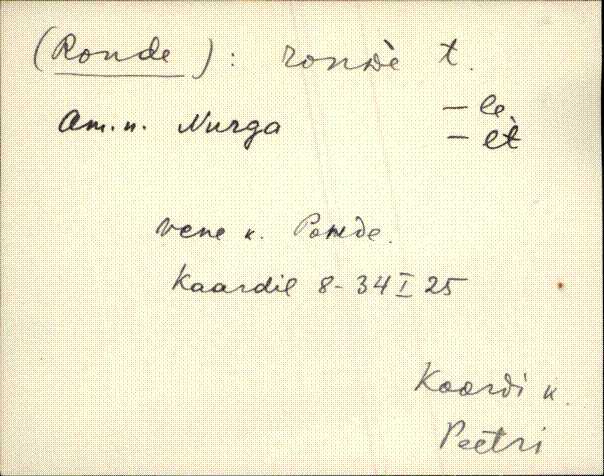 (Ronde): rondè̬ t.
Am. n. Nurga
- le,
- èt
vene k. Ронде.
Kaardil 8-34 I 25
Koordi k.
Peetri